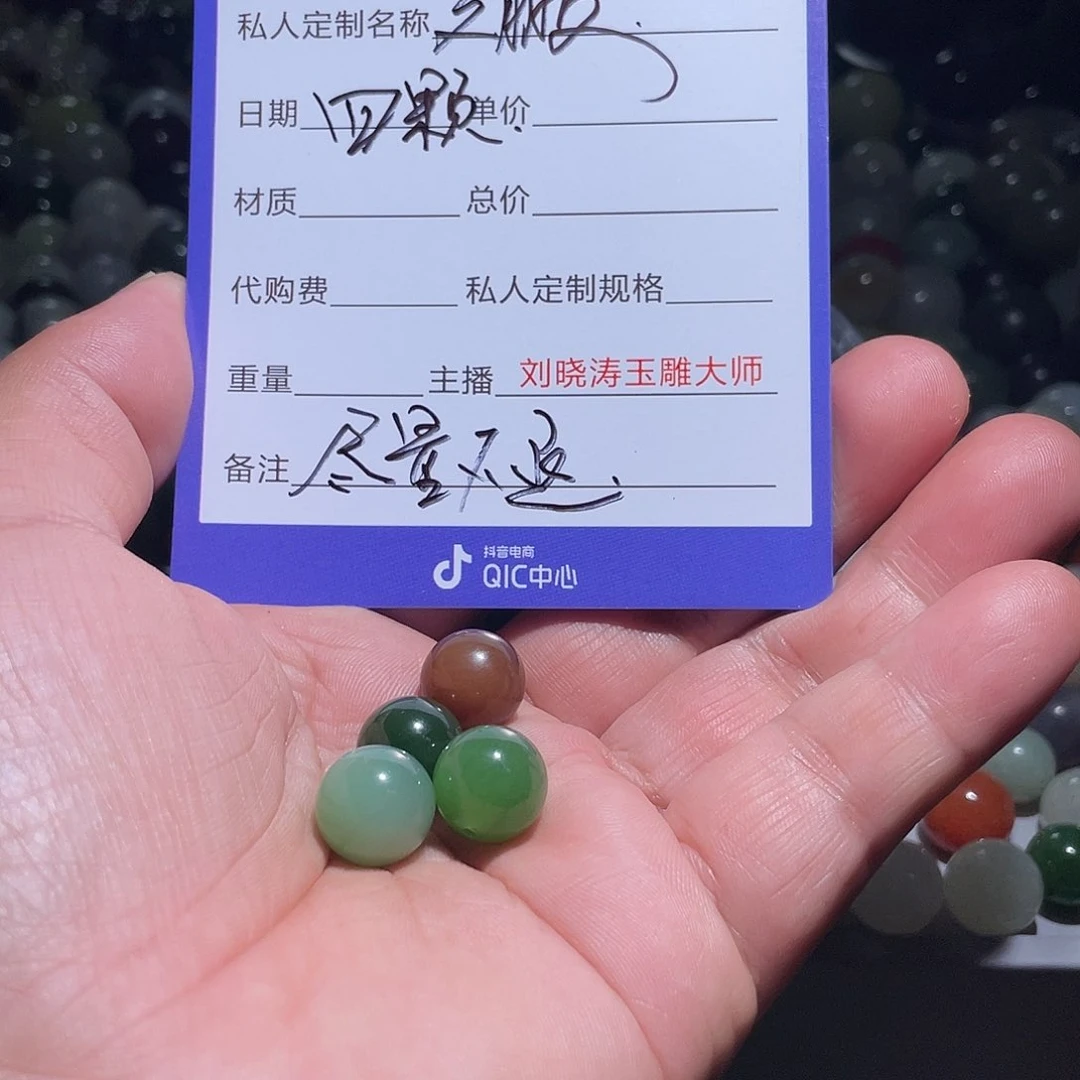 私人定制名称
日期 四颗. 单价
材质 总价
代购费 私人定制规格
重量 主播 刘晓涛玉雕大师
备注 尽量不退.
抖音电商
QIC中心